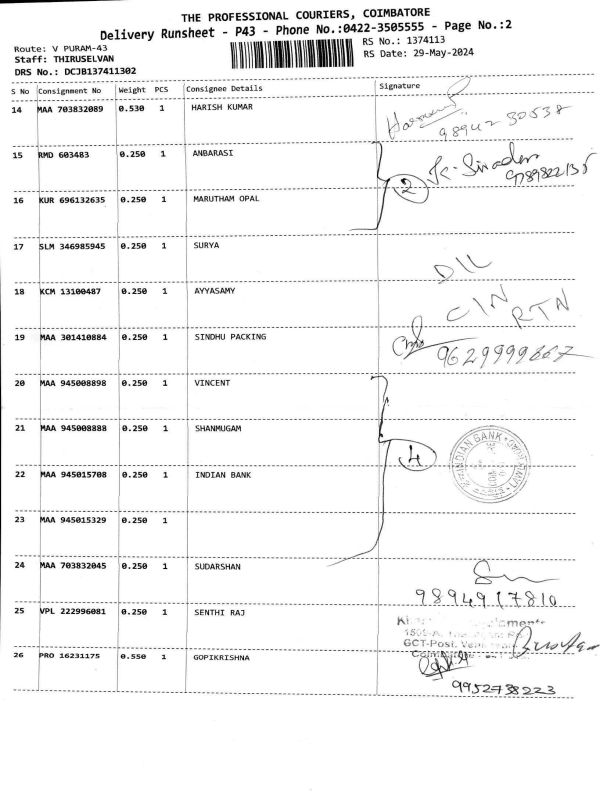 THE PROFESSIONAL COURIERS, COIMBATORE
Delivery Runsheet - P43 - Phone No.:0422-3505555 - Page No.:2
Route: V PURAM-43
RS No.: 1374113
Staff: THIRUSELVAN
RS Date: 29-May-2024
DRS No.: DCJB137411302
S No Consignment No Weight PCS Consignee Details Signature
14 MAA 703832089 0.530 1 HARISH KUMAR
98942 30538
15 RMD 603483 0.250 1 ANBARASI
2
9789822135
16 KUR 696132635 0.250 1 MARUTHAM OPAL
17 SLM 346985945 0.250 1 SURYA
DIL
18 KCM 13100487 0.250 1 AYYASAMY
CIN RTN
19 MAA 301410884 0.250 1 SINDHU PACKING
9629999667
20 MAA 945008898 0.250 1 VINCENT
21 MAA 945008888 0.250 1 SHANMUGAM
4
INDIAN BANK
22 MAA 945015708 0.250 1 INDIAN BANK
23 MAA 945015329 0.250 1
24 MAA 703832045 0.250 1 SUDARSHAN
9894917810
25 VPL 222996081 0.250 1 SENTHI RAJ
GCT-Post,
26 PRO 16231175 0.550 1 GOPIKRISHNA
9952738223